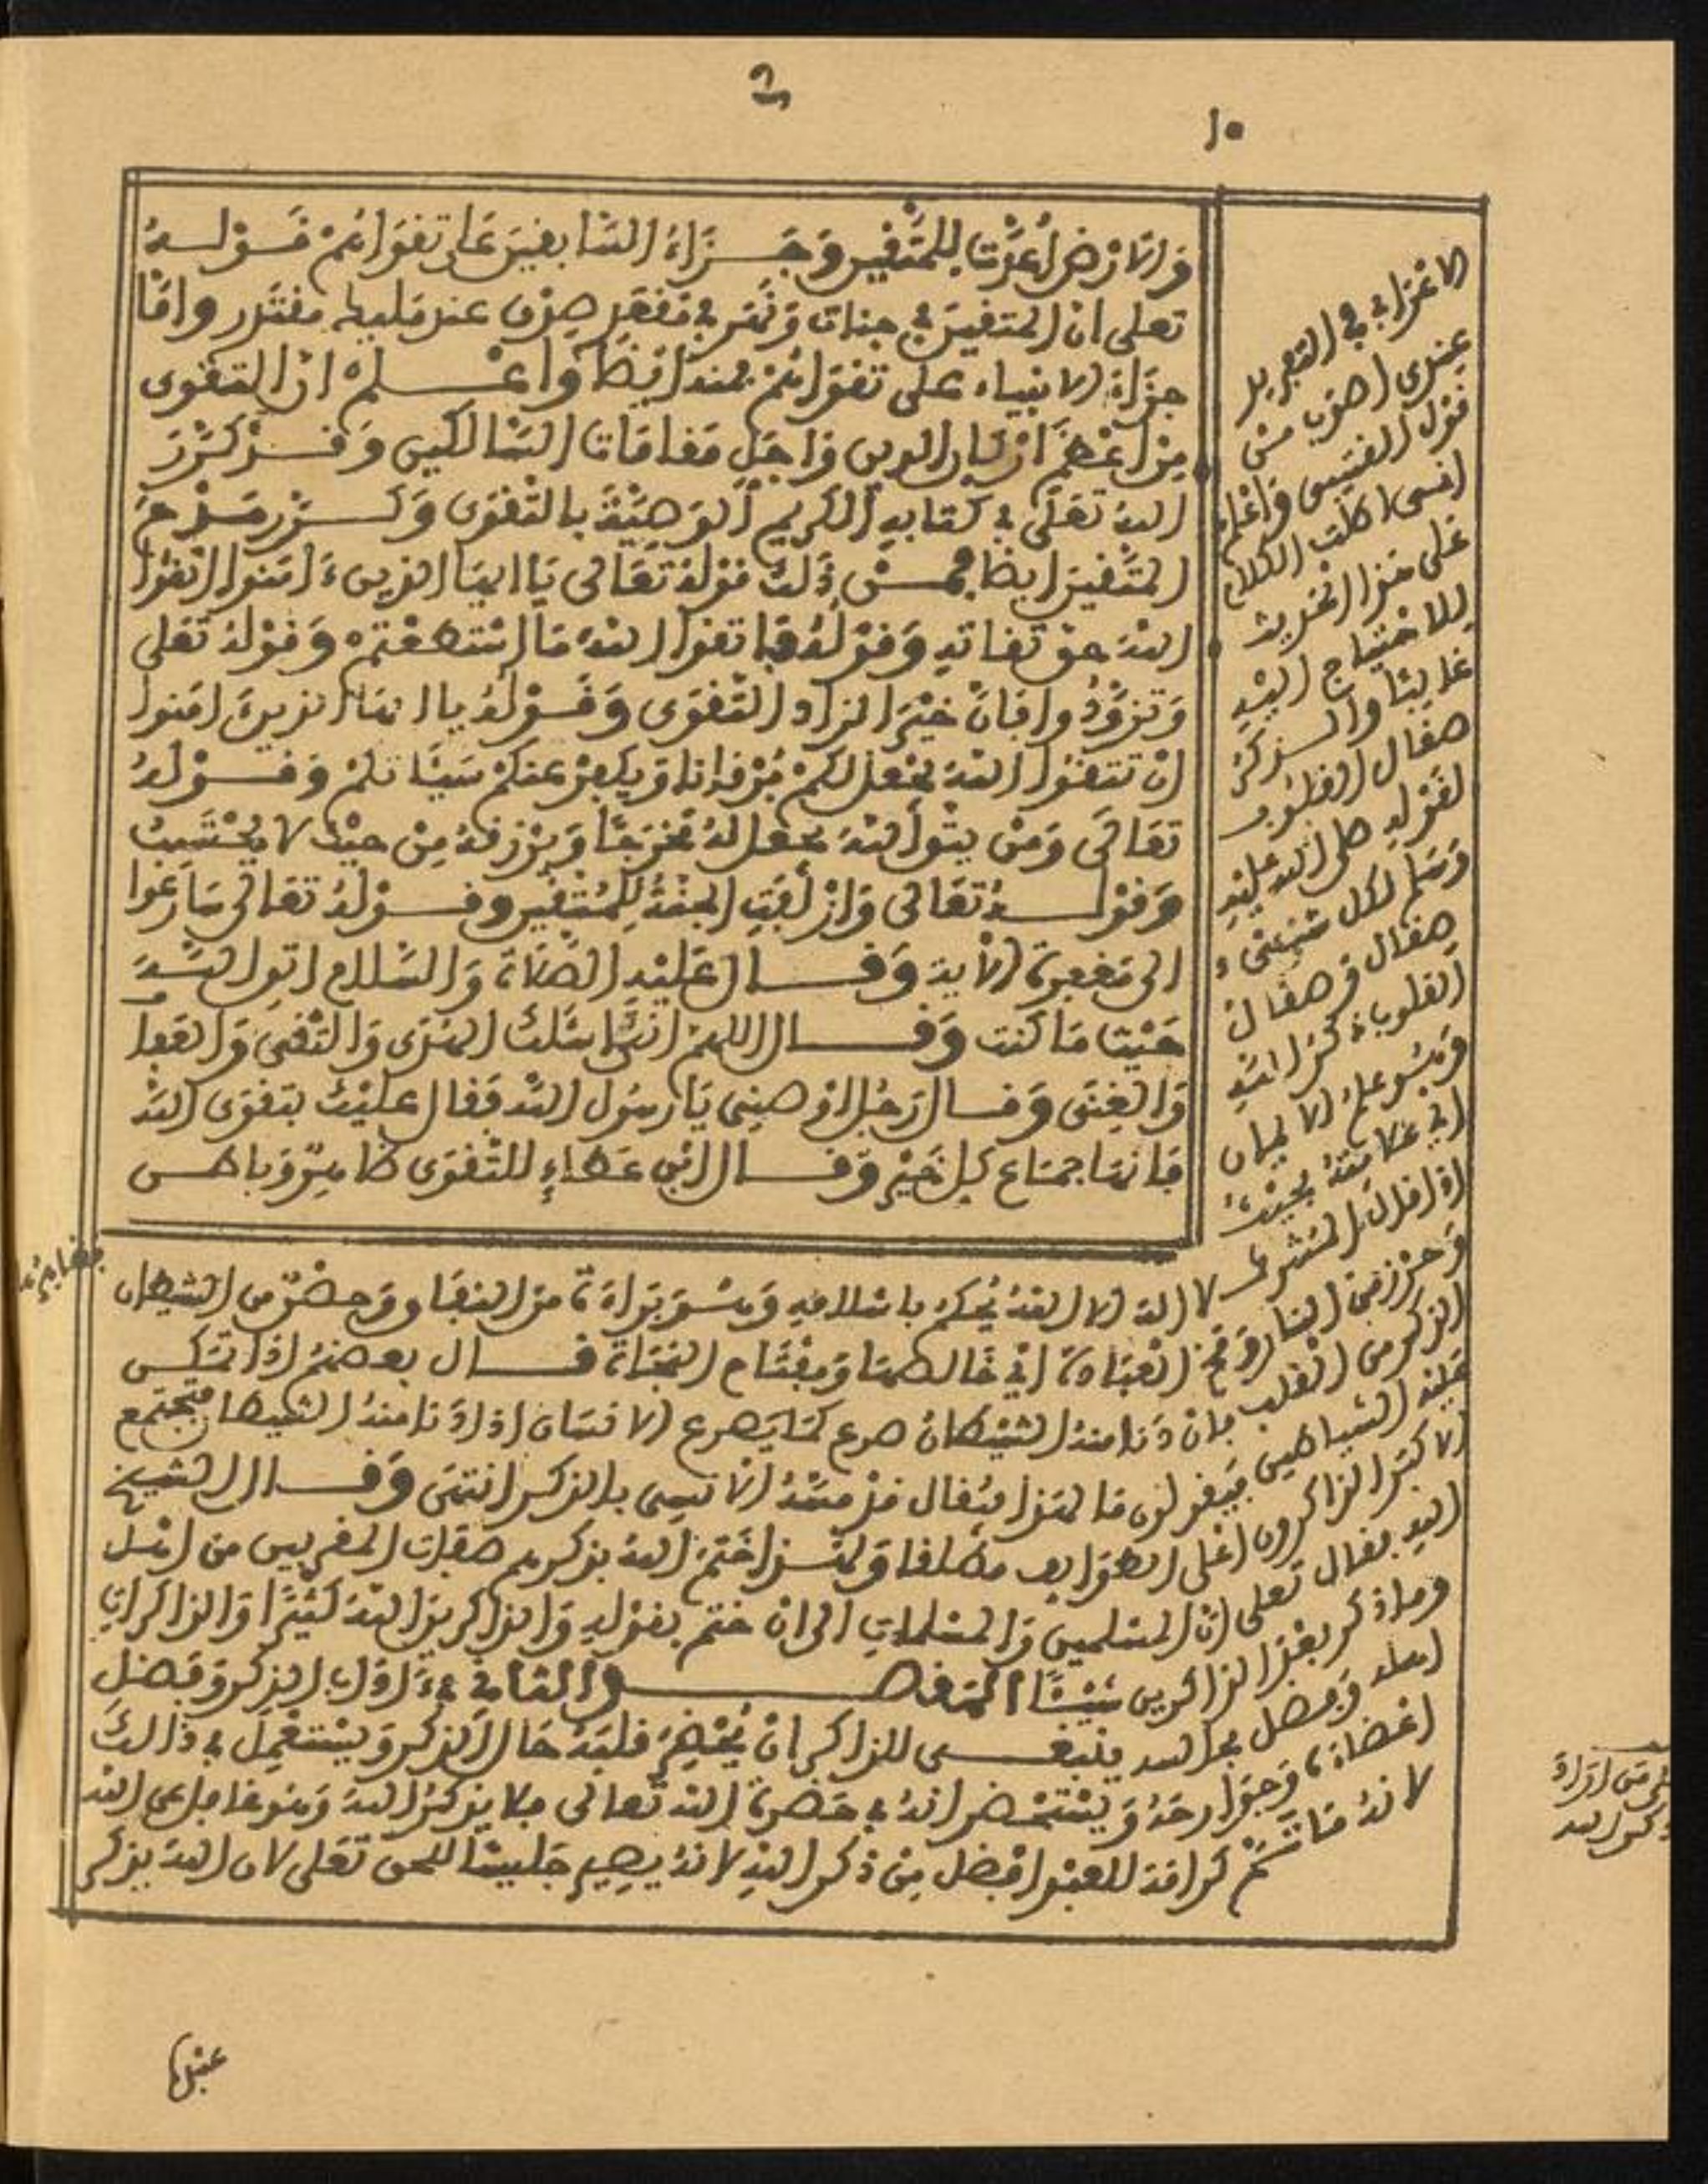 ١٠
والارض أعدت للمتقين وجزاء السابقين على تقواهم قوله
تعلى ان المتقين في جنات ونهر في مقعد صدق عند مليك مقتدر واما
جزاء الانبياء على تقواهم ايضا واعلم ان التقوى
من اعظم اركان الدين واجل مقامات السالكين وقد كرر
الله تعلى في كتابه الكريم الوصية بالتقوى وكرر مدح
المتقين ايضا فمن ذلك قوله تعالى يا ايها الذين ءامنوا اتقوا
الله حق تقاته وقوله فاتقوا الله ما استطعتم وقوله تعلى
وتزودوا فان خير الزاد التقوى وقوله يا ايها الذين امنوا
ان تتقوا الله يجعل لكم فرقانا ويكفر عنكم سيئاتكم وقوله
تعالى ومن يتق الله يجعل له مخرجا ويرزقه من حيث لا يحتسب
وقوله تعالى وازلفت الجنة للمتقين وقوله تعالى سارعوا
الى مغفرة الاية وقال عليه الصلاة والسلام اتق الله
حيث ما كنت وقال اللهم اني اسئلك الهدى والتقى والعفاف
والغنى وقال رجل اوصني يا رسول الله فقال عليك بتقوى الله
فانها جماع كل خير وقال ابن عطاء للتقوى ظاهر وباطن
عندي اصوب من
قول القسس واعلم
اني اطلت الكلام
على هذا الحديث
للاحتياج اليه
غالبا والذكر
صقال القلوب
لقوله صلى الله عليه
وسلم لكل شيء
صقال وصقال
القلوب ذكر الله
وهو علم الايمان
اي علامته بحيث
اذا قال المشرك لا اله الا الله يحكم باسلامه وهو براءة من النفاق وحصن من الشيطان
وحرز من النار ومخ العبادة اي خالصها ومفتاح النجاة قال بعضهم اذا تمكن
الذكر من القلب فان دنا منه الشيطان صرع كما يصرع الانسان اذا دنا منه الشيطان فيجتمع
عليه الشياطين فيقولون ما لهذا فيقال قد مسه الانسي بالذكر انتهى وقال الشيخ
الاكبر الذاكرون اعلى الطوايف مطلقا ولهذا ختم الله بذكرهم صفات المقربين من اهل
الله فقال تعلى ان المسلمين والمسلمات الى ان ختم بقوله والذاكرين الله كثيرا والذاكرات
وما ذكر بعد الذاكرين شيئا المقصد الثاني في ءاداب الذكر وفضل
اهله وفضل مجالسه ينبغي للذاكر ان يحضر قلبه حال الذكر ويستعمل في ذالك
اعضاءه وجوارحه ويستحضر انه في حضرة الله تعالى فلا يذكر الله وهو غافل عن الله
لانه ما ثم كرامة للعبد افضل من ذكر الله لانه يصير جليسا للحق تعلى لان الله يذكر